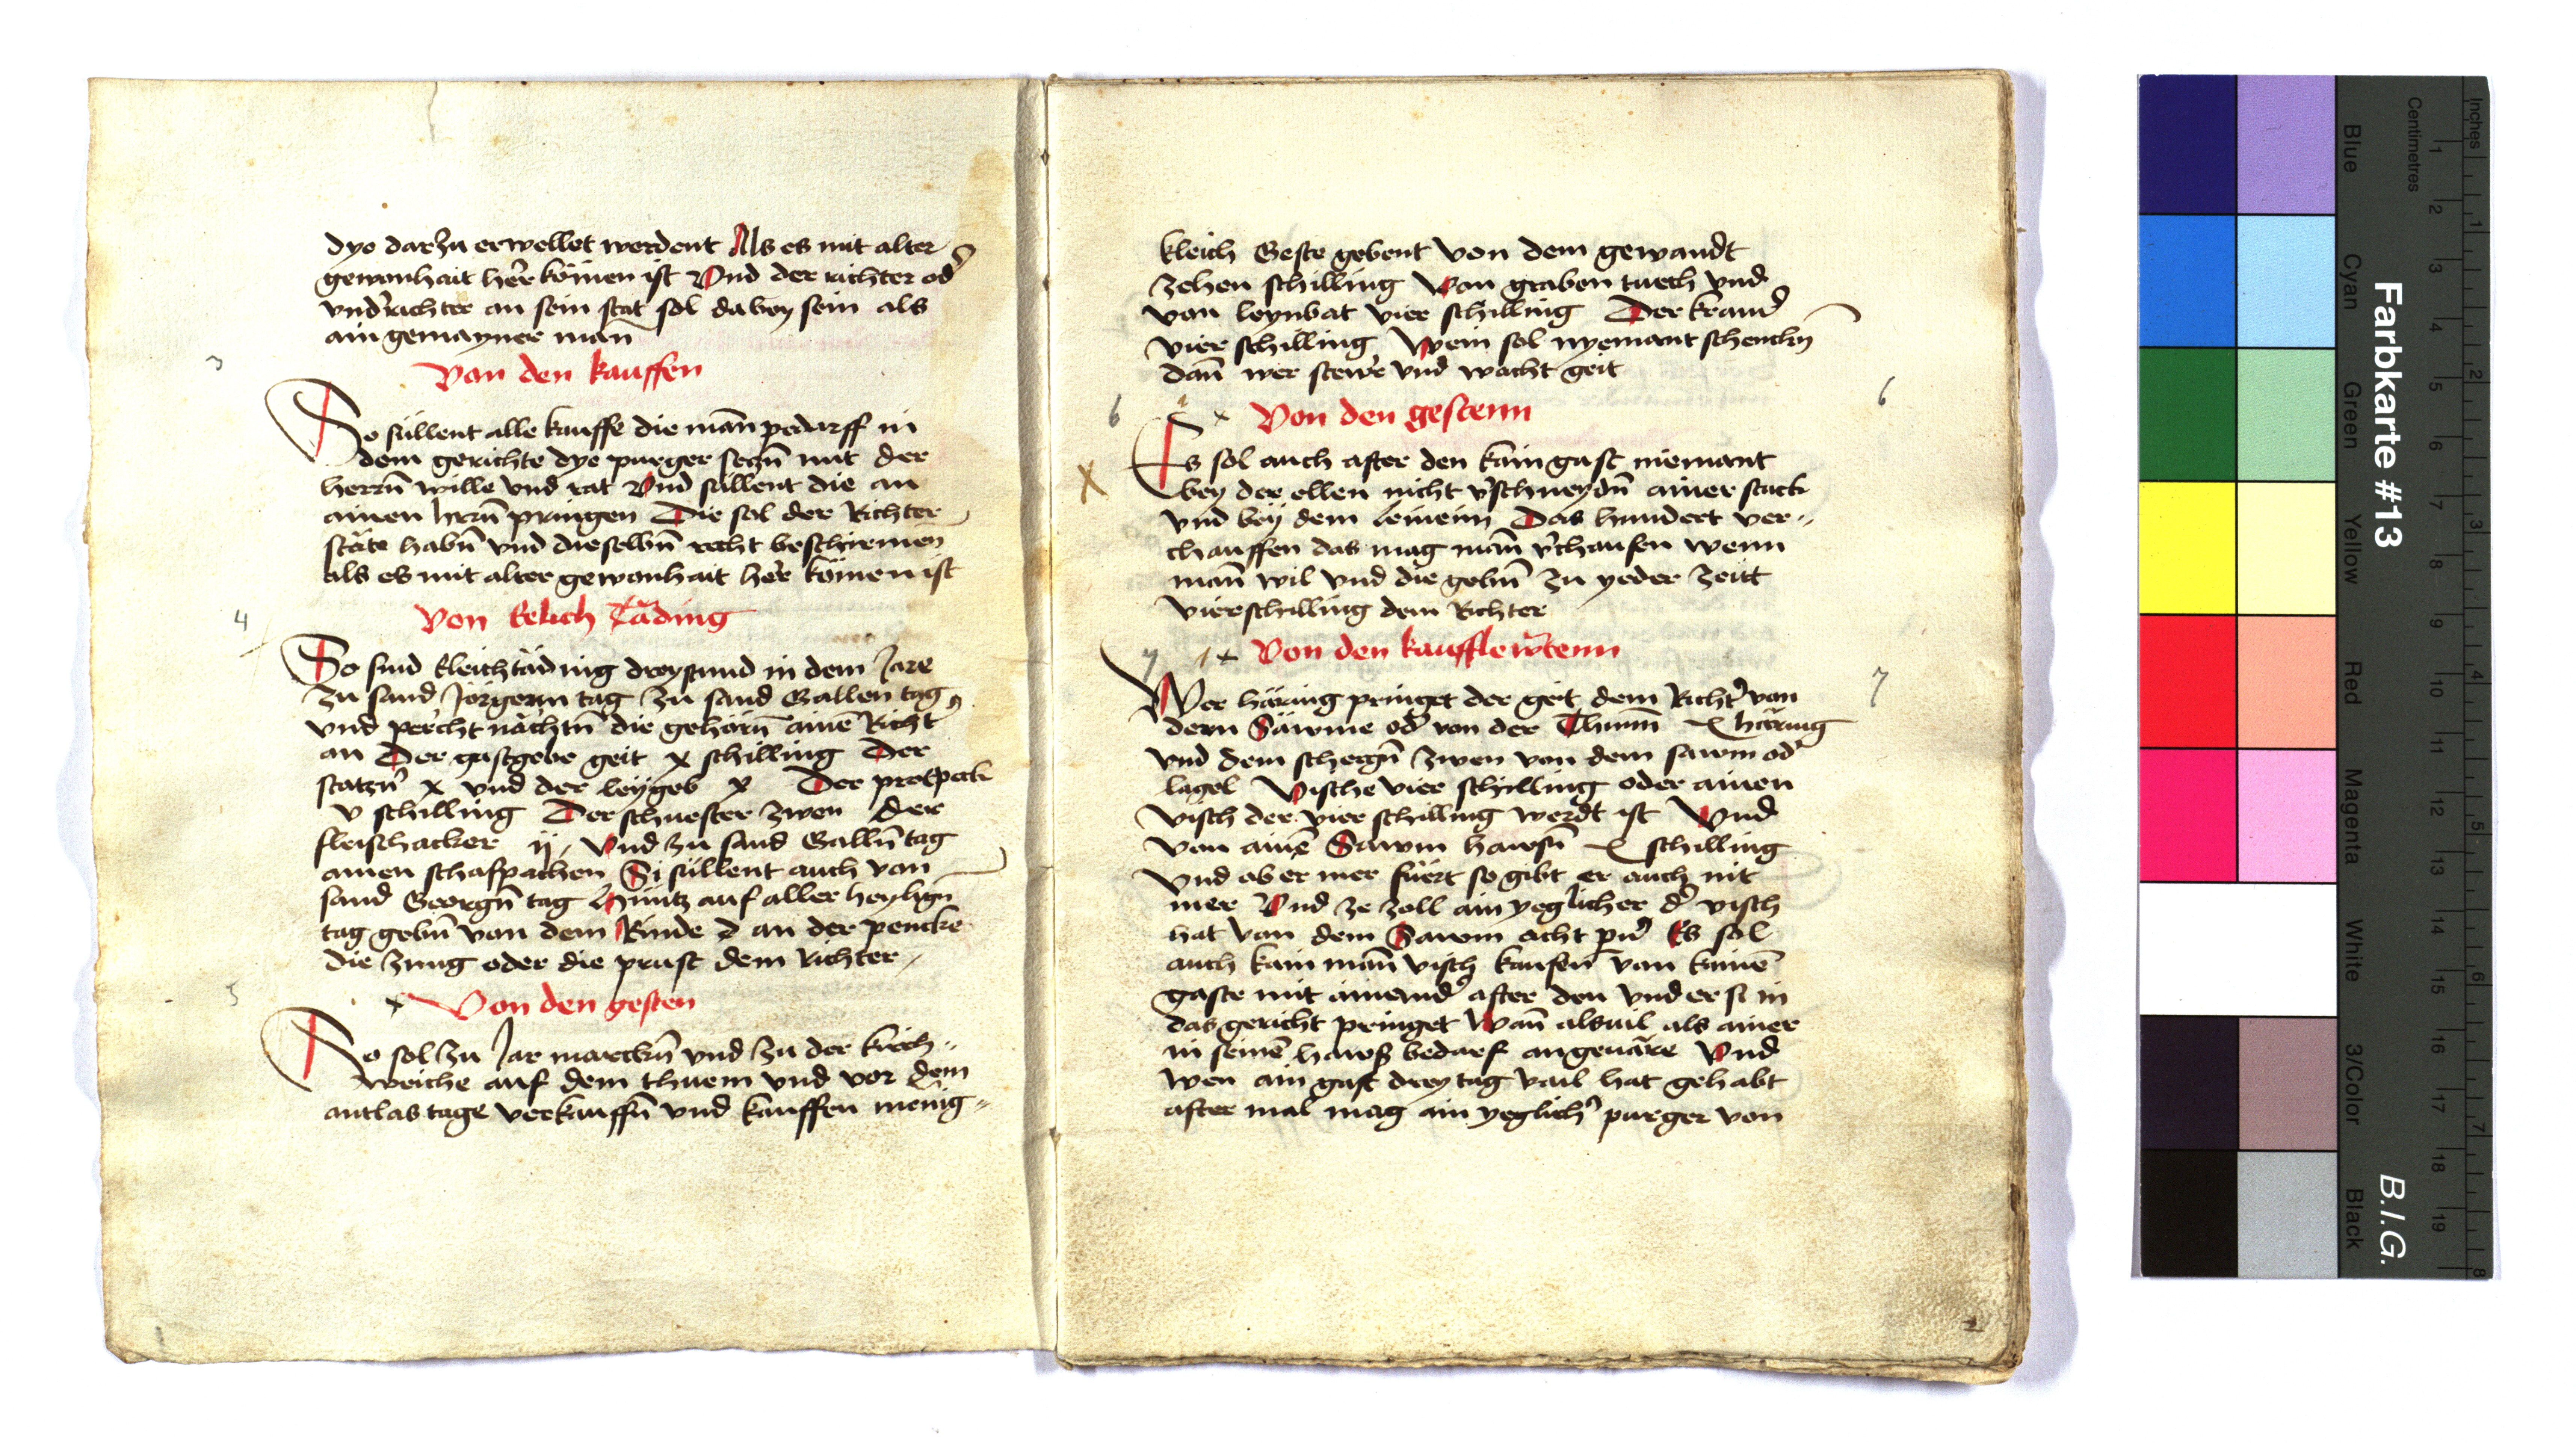 dye darzu erwellet werdent Als es mit alter
gewonhait herr kömen ist Vnd der richter od̕
vnd̕richter an sein stat sol dabey sein als
ain gemayner man̄
3
Von den kauffen
So süllent alle kauffe die man̄ pedurff in
dem gerichte dye purger seczn̄ mit der
herrn̄ wille vnd rat Vnd süllent die an
ainen hern̄ pringen Die sol der Richter
stäte habn̄ vnd dieselbn̄ recht beschirmen
als es mit alter gewonhait her kömen ist
4
Von Eelich Täding
So sind Eleich täding dreystund in dem Jare
zu sand Jörgenn tag zu sand Gallen tag
vnd percht nächtn̄ die gehörn̄ ainē Richt̕
an Der gastgebe geit x schilling Der
statzn̕ x vnd der leÿgeb x Der protpeck
v schilling Der schuester zwen der
fleischacker ij, Vnd zu sand Galln̄ tag
ainen schafpachen Si süllent auch von
sand Georgn̄ tag Hüntz auf aller heylign̄
tag gebn̄ von dem Rinde d an der pencke
die zung oder die prust dem richter,
5
x Von den gesten
So sol zu Jar marcktn̄ vnd zu der kirch„
weiche auf dem thuem vnd vor dem
antlastage verkauffn̄ vnd kauffen menig„
kleich Geste gebent von dem gewandt
zehen schilling Von graben tuech vnd
von leynbat vier schilling Der kramd̕
vier schilling Wein sol nyemant schenckn̄
dan̄ wer stewr vnd wacht geit
6 x Von den gestenn 6
X
Es sol auch after den kain gast niemant
bey der ellen nicht v̕schneydn̄ ainer stuck
vnd bey dem leineim Das hundert ver„
chauffen das mag man̄ v̕chaufen wenn
man̄ wil vnd die gebn̄ zu yeder zeitt
vierschilling dem Richter
7 x Von den kaufflewtenn
7
Wer häring pringet der geit dem Richt̕ von
dem Säwme od̕ von der Thunn̄ x häring
vnd dem schergn̄ zwen von dem sawm od̕
lagel Vische vier schilling oder ainen
visch der vier schilling werdt ist Vnd
von ainē Sawm hawsn̄ x schilling
Vnd ob er mer füert so gibt er auch nit
mer Vnd ze zoll ain yeglicher d̕ visch
hat von dem Sawm acht Es sol
auch kain man̄ visch kaufen von kainē
gaste mit ainand̕ after den vnd er si in
das gericht pringet Wan̄ alsuil als ainer
in seinē hawß bedarf angeuäre Vnd
wen ain gast drey tag vail hat gehabt
after mal mag ain yeglich̕ purger von
2
Farbkarte #13
B.I.G.
Inches
Centimetres
1 2 3 4 5 6 7 8 9 10 11 12 13 14 15 16 17 18 19
1 2 3 4 5 6 7 8
Blue
Cyan
Green
Yellow
Red
Magenta
White
3/Color
Black